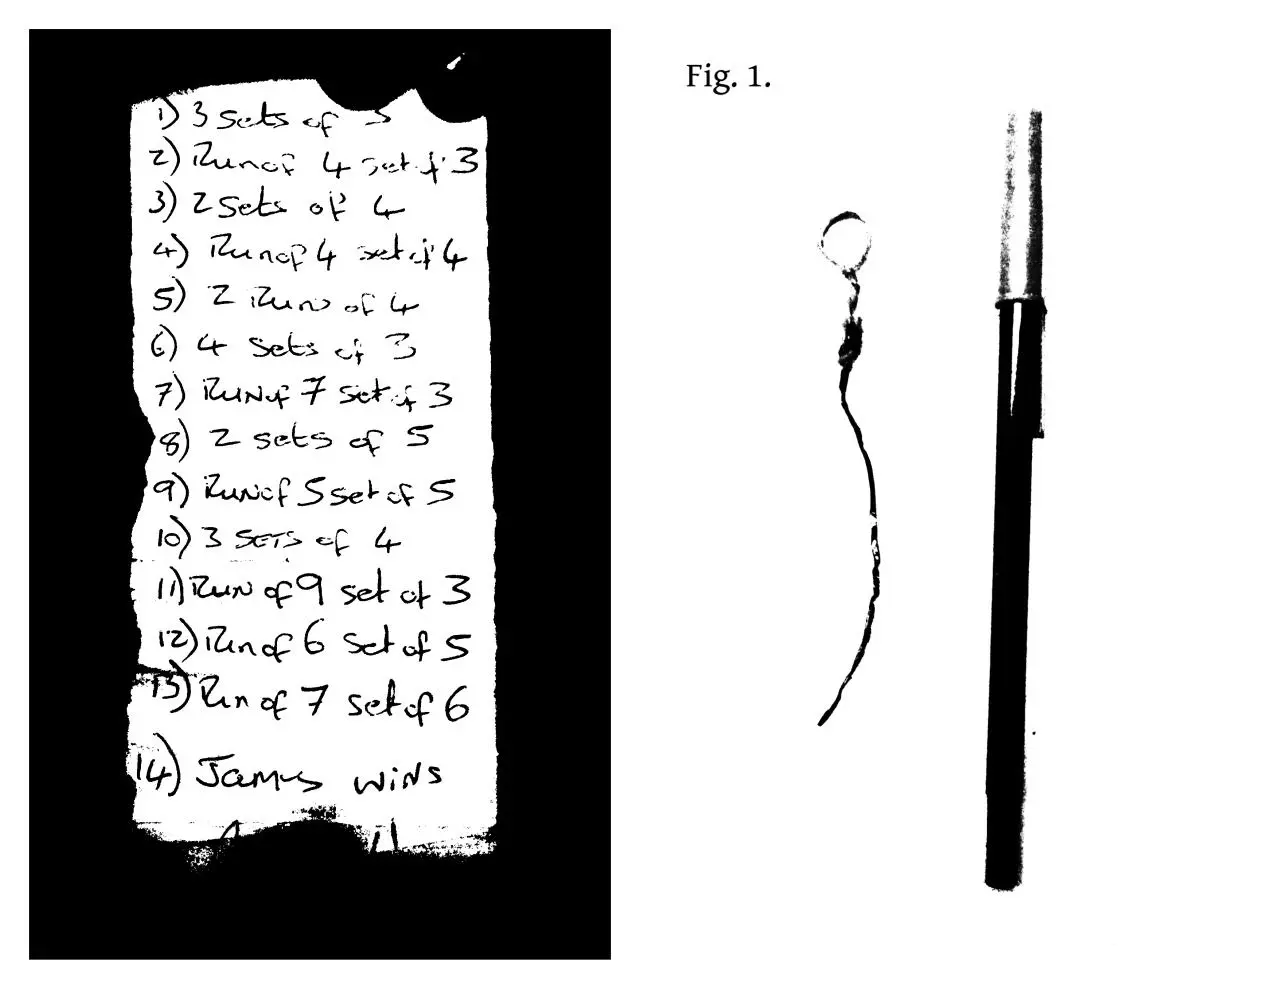 1) 3 sets of 3
2) Run of 4 set of 3
3) 2 sets of 4
4) Run of 4 set of 4
5) 2 Run of 4
6) 4 sets of 3
7) Run of 7 set of 3
8) 2 sets of 5
9) Run of 5 set of 5
10) 3 SETS of 4
11) Run of 9 set of 3
12) Run of 6 set of 5
13) Run of 7 set of 6
14) James wins
Fig. 1.